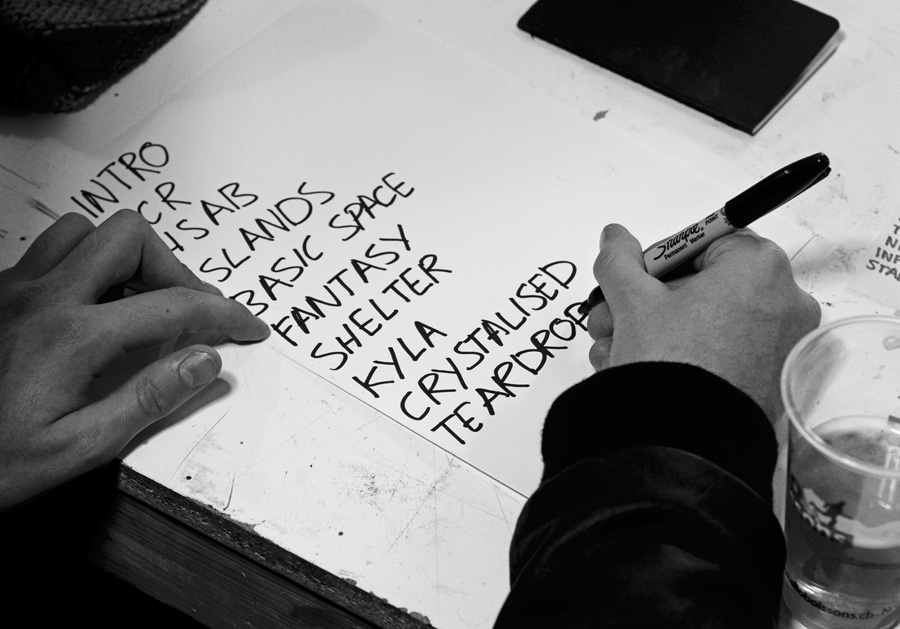 INTRO
CR
SAB
SLANDS
BASIC SPACE
FANTASY
SHELTER
KYLA
CRYSTALISED
TEARDROP
Sharpie
Permanent Marker
INF
STA
boissons.ch